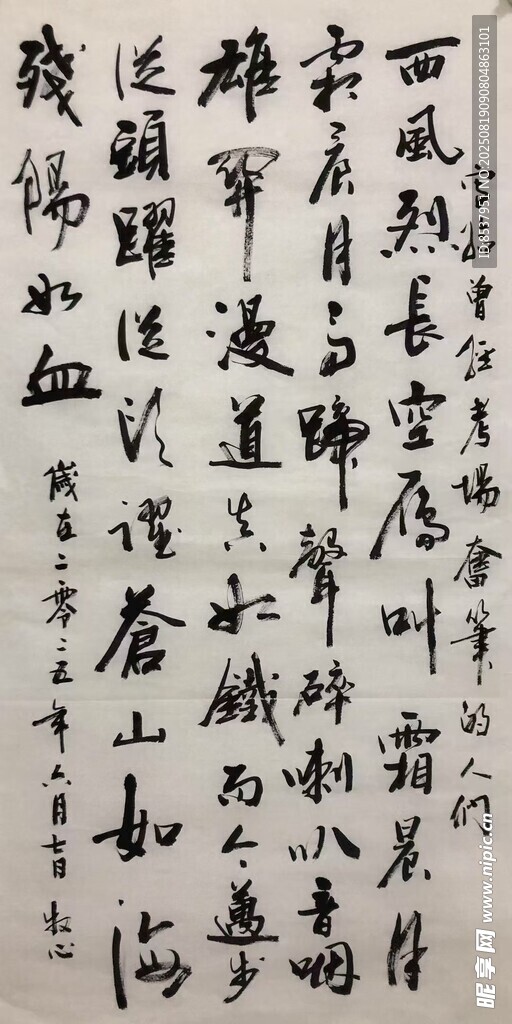 曾經考場奮筆的人們
西風烈長空雁叫霜晨月
霜晨月馬蹄聲碎喇叭音咽
雄關漫道真如鐵而今邁步
從頭躍從頭躍蒼山如海
殘陽如血
歲在二零二五年六月七日 牧心
ID:8537951 NO:20250819090804863101
昵享网 www.nipic.cn